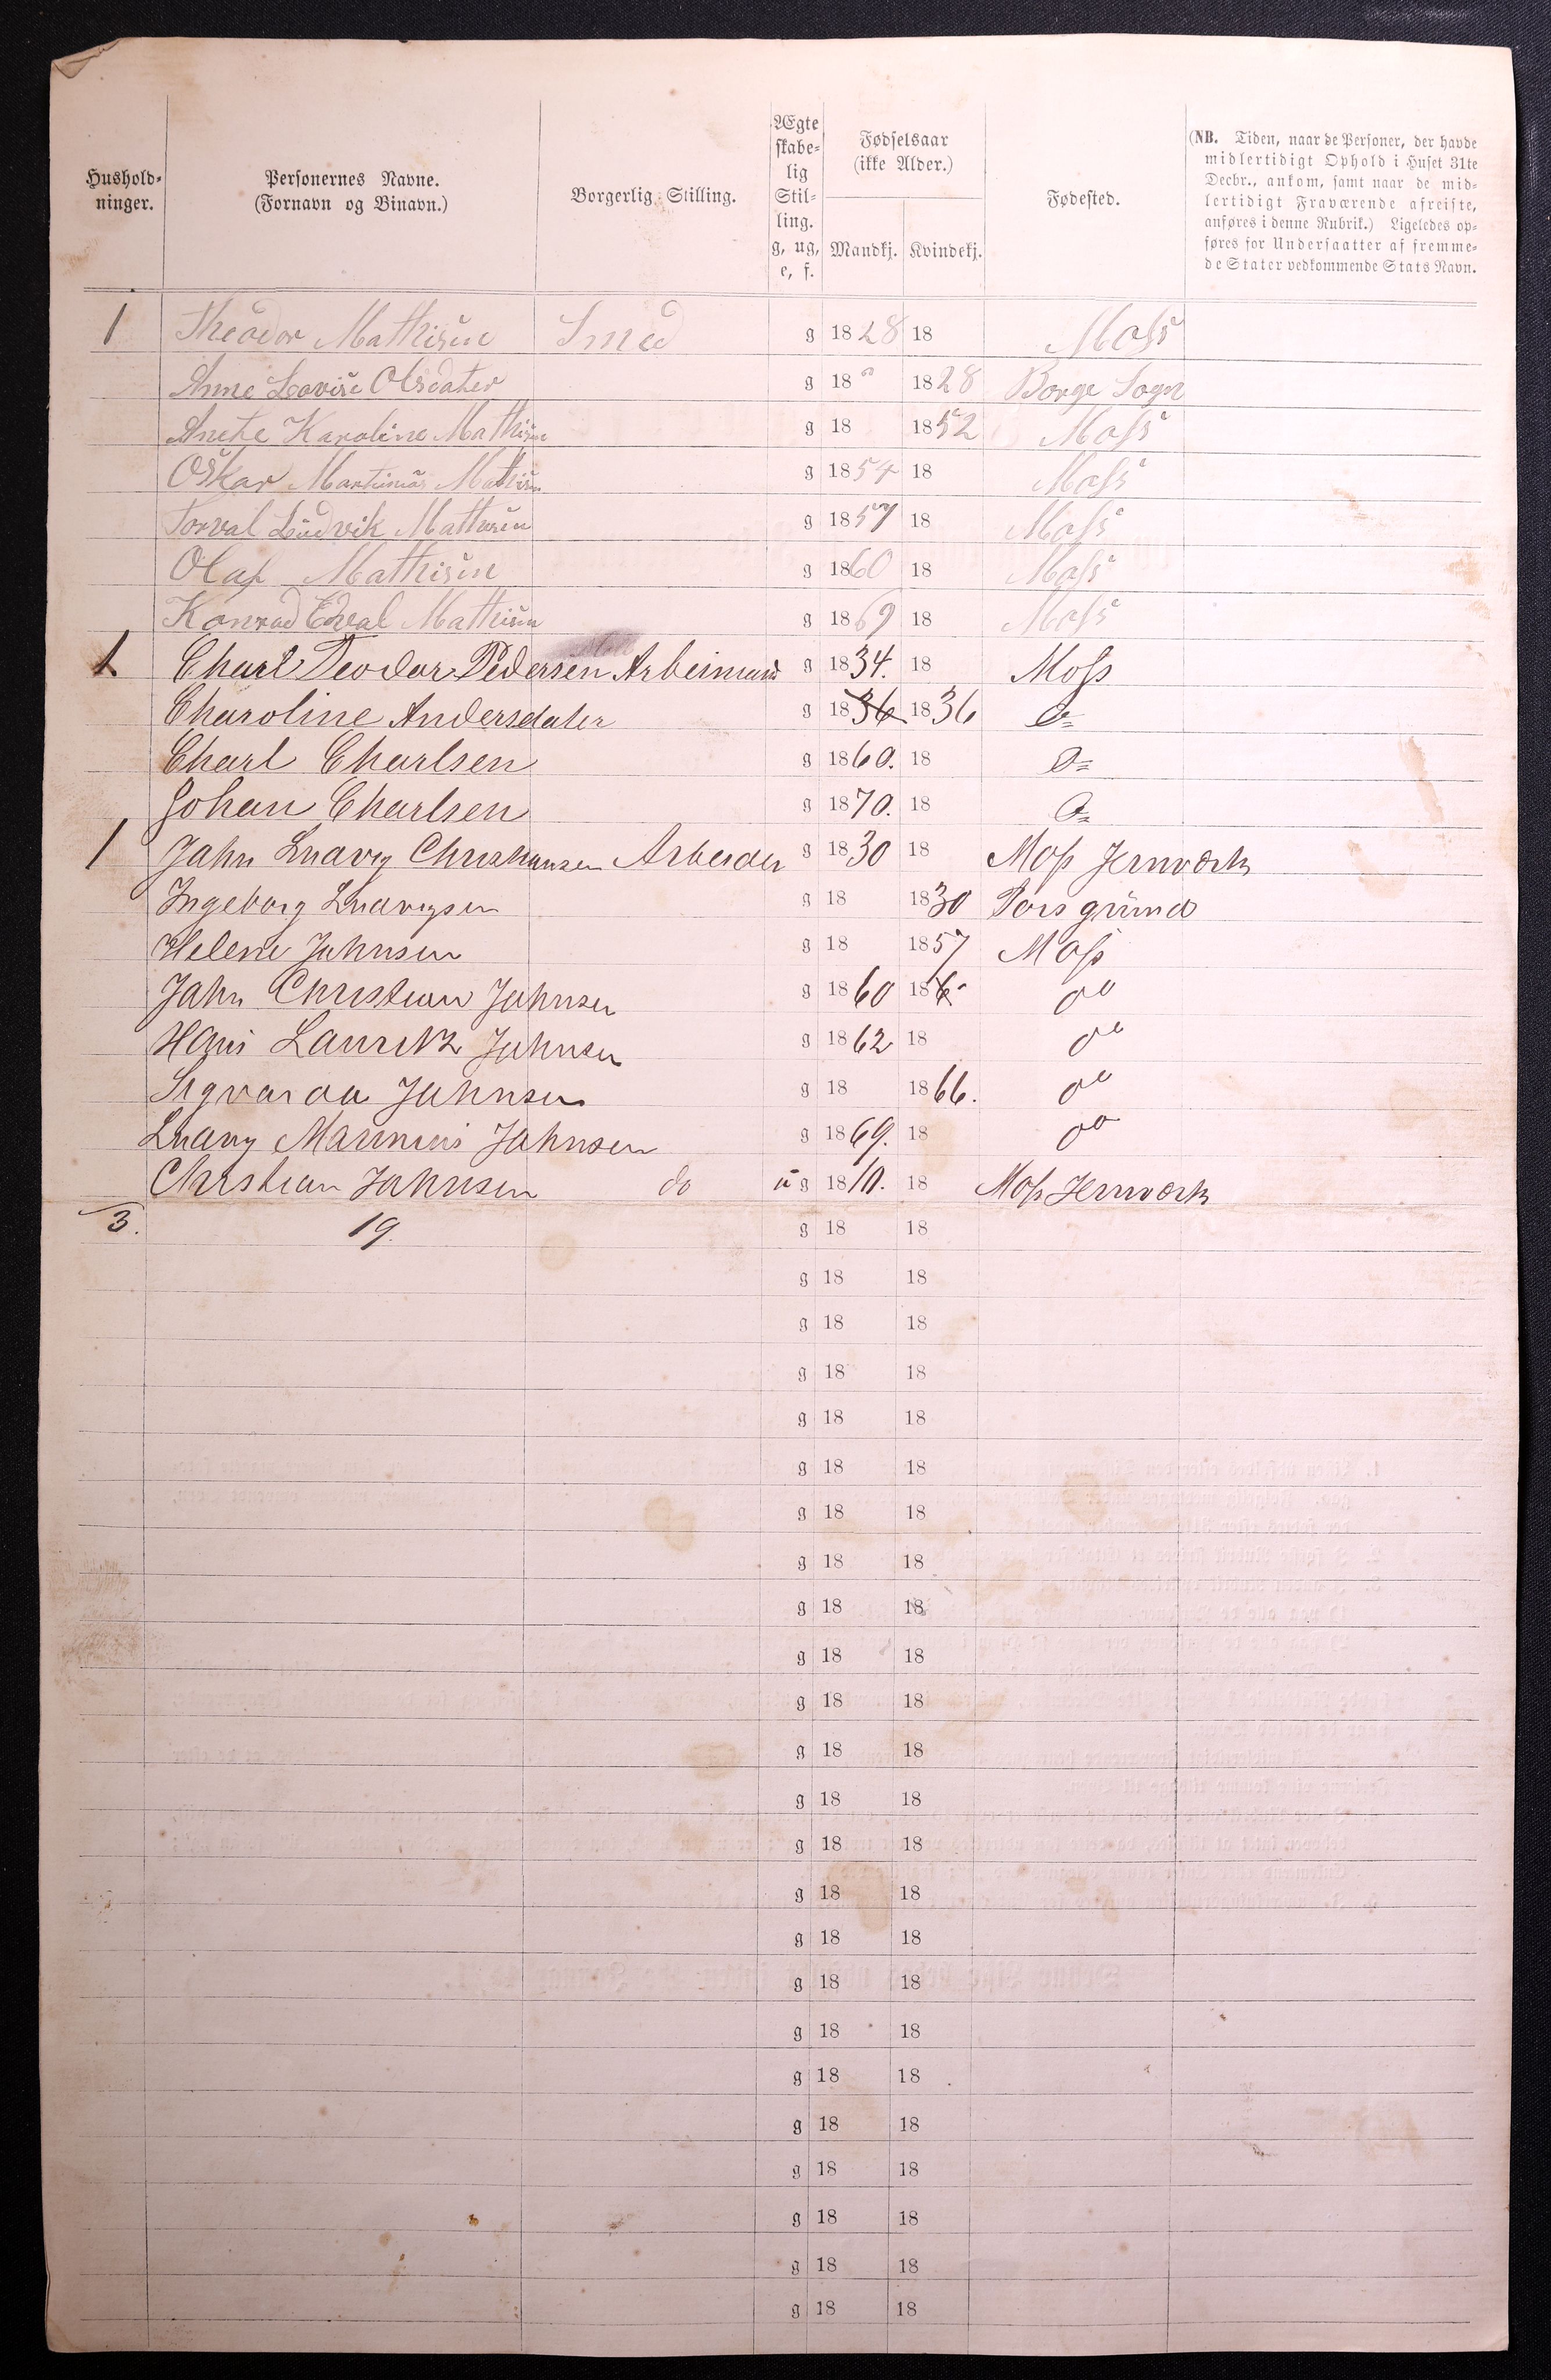 Hushold-ninger. Personernes Navne. (Fornavn og Binavn.) Borgerlig Stilling. Ægteskabe-lig Stil-ling. g, ug, e, f. Fødselsaar (ikke Alder.) Mandkj. Kvindekj. Fødested. (NB. Tiden, naar de Personer, der havde midlertidigt Ophold i Huset 31te Decbr., ankom, samt naar de mid-lertidigt Fraværende afreiste, anføres i denne Rubrik.) Ligeledes op-føres for Undersaatter af fremme-de Stater vedkommende Stats Navn.
1 Theodor Mathisen Smed g 1828 18 Moss
Anne Lovise Olsdater g 18 1828 Borge Sogn
Anete Karoline Mathisen g 18 1852 Moss
Oskar Martinius Mathisen g 1854 18 Moss
Torval Ludvik Mathisen g 1857 18 Moss
Olaf Mathisen g 1860 18 Moss
Konrad Edval Mathisen g 1869 18 Moss
1 Charl Teodor Pedersen Arbeimand g 1834. 18 Moss
Charoline Andersdater g 1836 1836 do
Charl Charlsen g 1860. 18 do
Johan Charlsen g 1870. 18 do
1 Jahn Ludvig Christiansen Arbeider g 1830 18 Moss Jernværk
Ingeborg Ludvigsen g 18 1830 Porsgrund
Helene Jahnsen g 18 1857 Moss
Jahn Christian Jahnsen g 1860 186 do
Hans Lauritz Jahnsen g 1862 18 do
Sigvarda Jahnsen g 18 1866. do
Ludvig Marinius Jahnsen g 1869. 18 do
Christian Jahnsen do ug 1810. 18 Moss Jernværk
3. 19. g 18 18
g 18 18
g 18 18
g 18 18
g 18 18
g 18 18
g 18 18
g 18 18
g 18 18
g 18 18
g 18 18
g 18 18
g 18 18
g 18 18
g 18 18
g 18 18
g 18 18
g 18 18
g 18 18
g 18 18
g 18 18
g 18 18
g 18 18
g 18 18